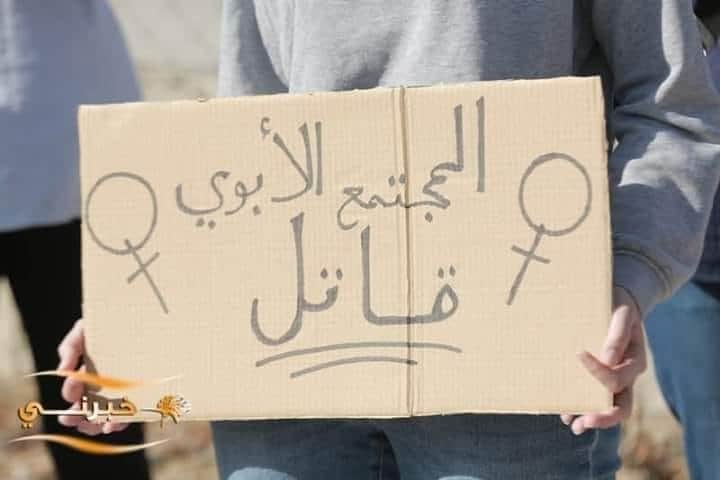 المجتمع الأبوي
قاتل
خبرني